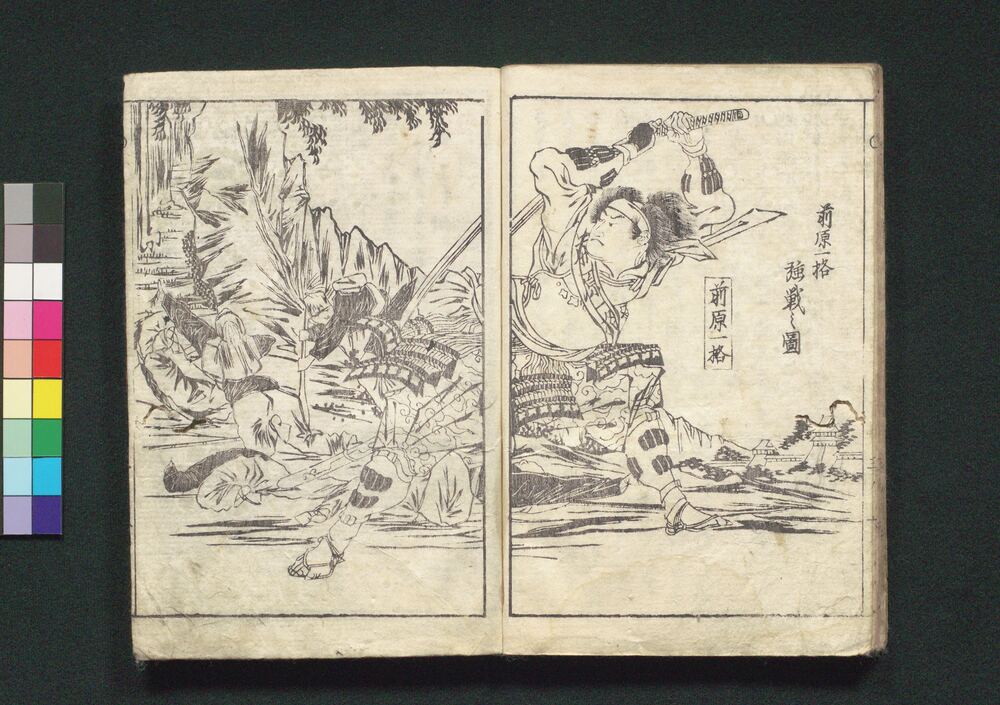 前原格
強戦之圖
前原一格